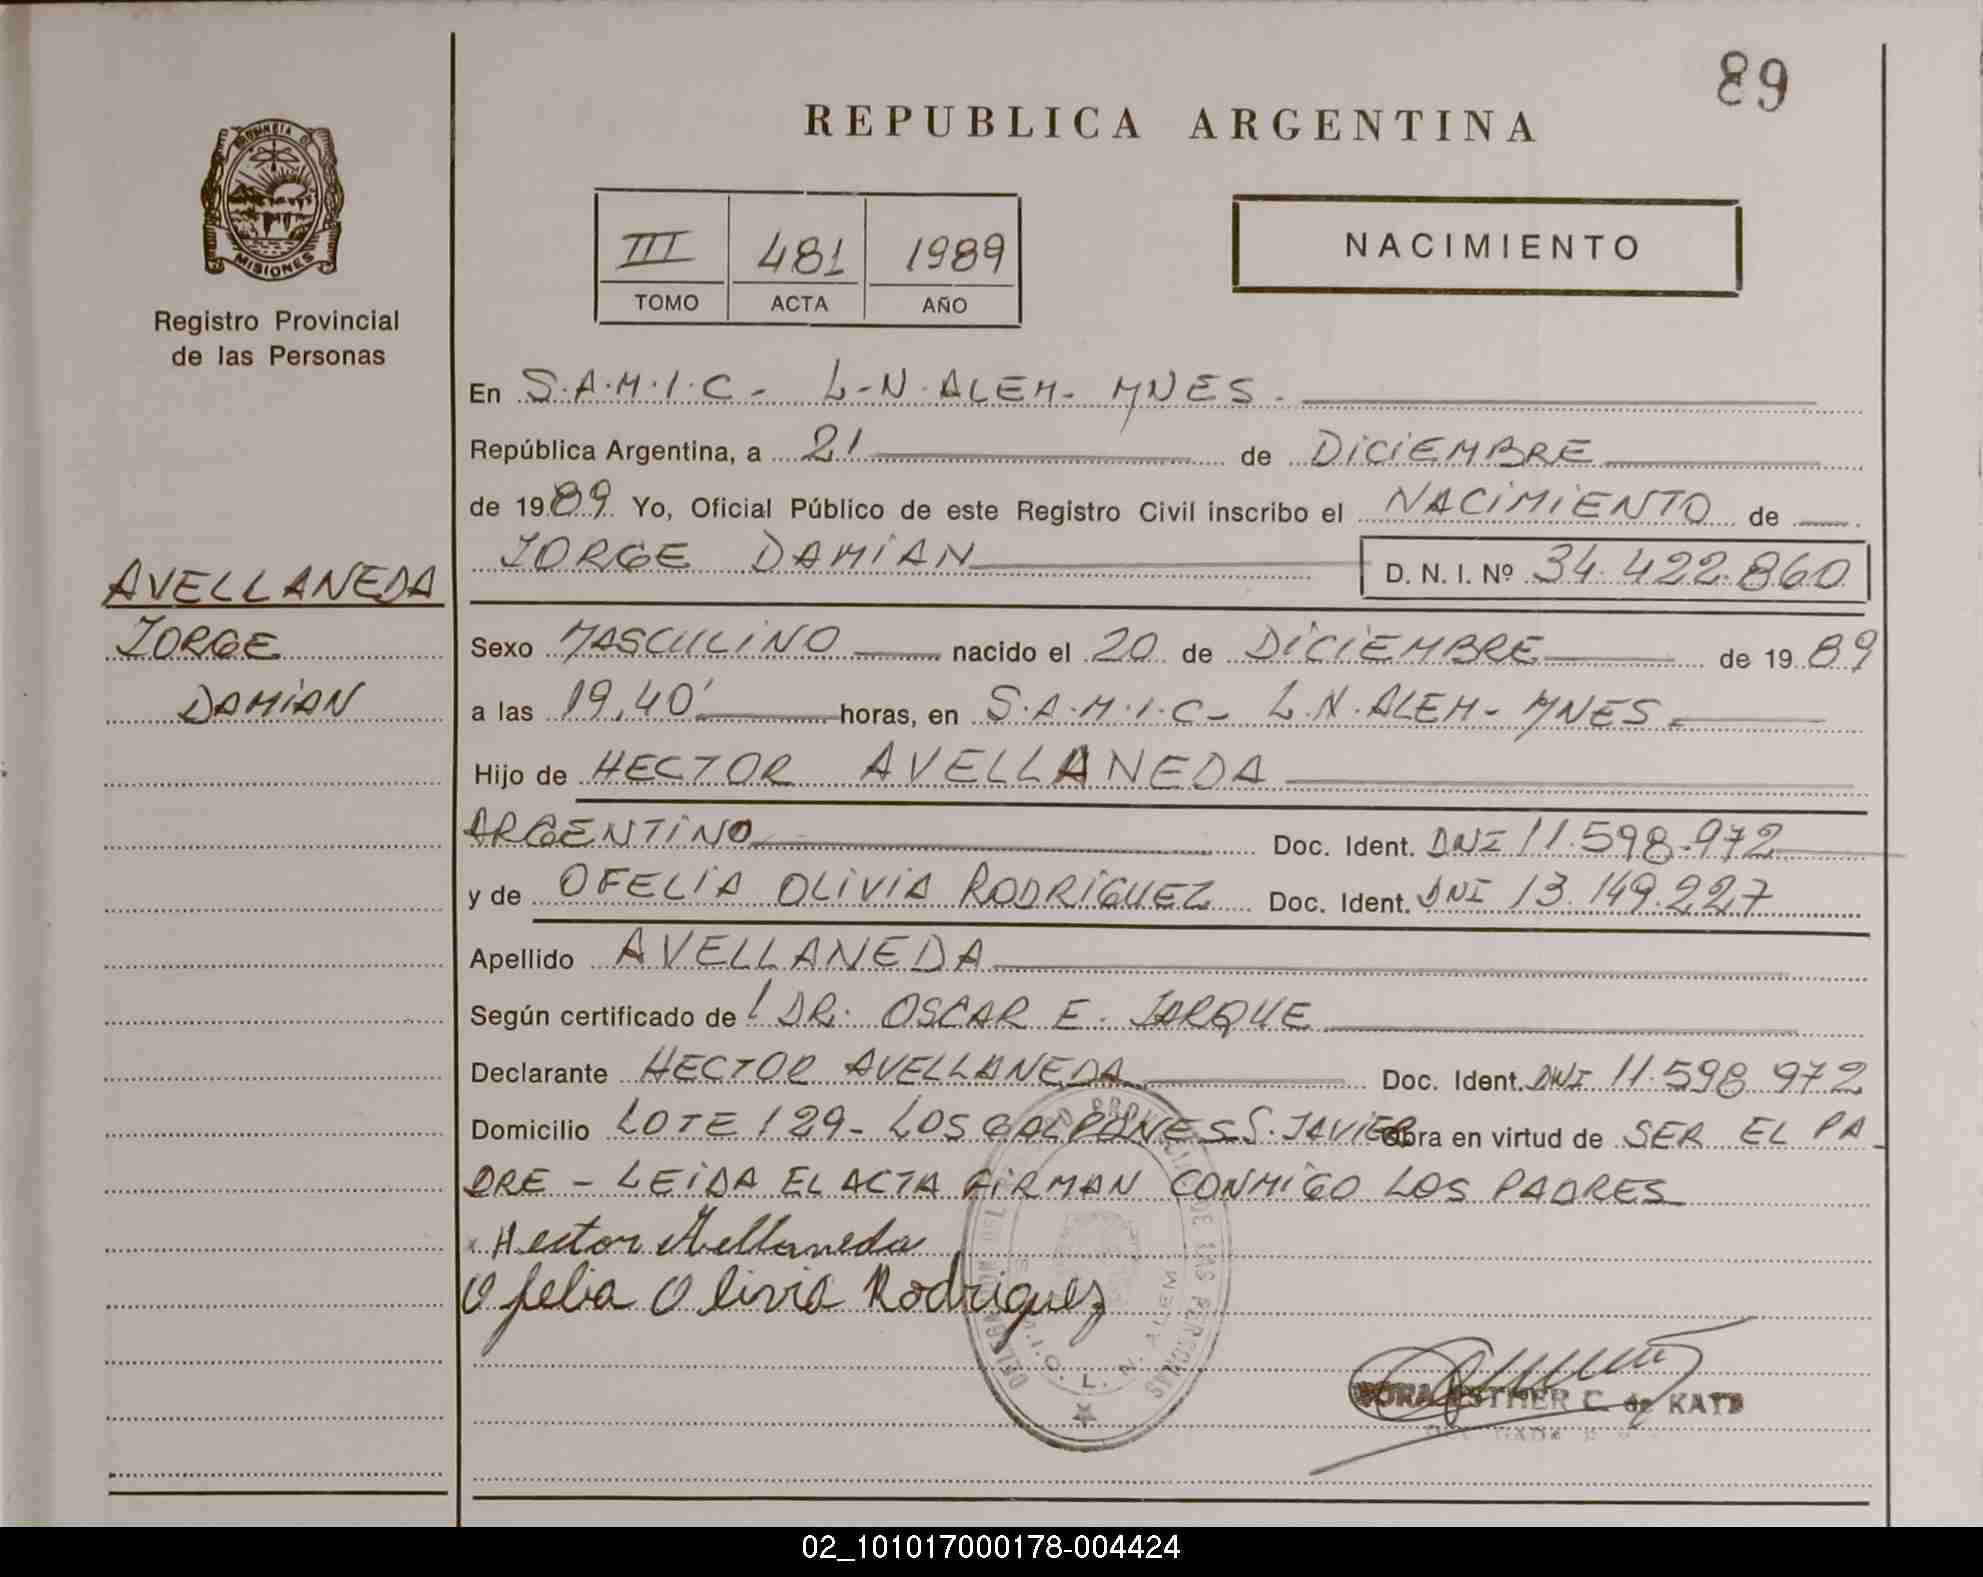 89
REPUBLICA ARGENTINA
PROVINCIA D
MISIONES
Registro Provincial
de las Personas
III 481 1989
TOMO ACTA AÑO
NACIMIENTO
En S.A.M.I.C - L-N-ALEM- MNES.
República Argentina, a 21 de DICIEMBRE
de 1989 Yo, Oficial Público de este Registro Civil inscribo el NACIMIENTO de
JORGE DAMIAN D. N. I. Nº 34.422.860
AVELLANEDA
JORGE
DAMIAN
Sexo MASCULINO nacido el 20 de DICIEMBRE de 1989
a las 19,40' horas, en S.A.M.I.C- L.N.ALEM- MNES.
Hijo de HECTOR AVELLANEDA
ARGENTINO Doc. Ident. DNI 11.598.972
y de OFELIA OLIVIA RODRIGUEZ Doc. Ident. DNI 13.149.227
Apellido AVELLANEDA
Según certificado de l DR. OSCAR E. JARQUE
Declarante HECTOR AVELLANEDA Doc. Ident. DNI 11.598 972
Domicilio LOTE 129- LOS GALPONES S. JAVIER obra en virtud de SER EL PA-
DRE - LEIDA EL ACTA FIRMAN CONMIGO LOS PADRES
Hector Avellaneda
Ofelia Olivia Rodriguez
PROVINCIAL DE LAS PERSONAS
L. N. ALEM
ESTHER C. de
02_101017000178-004424